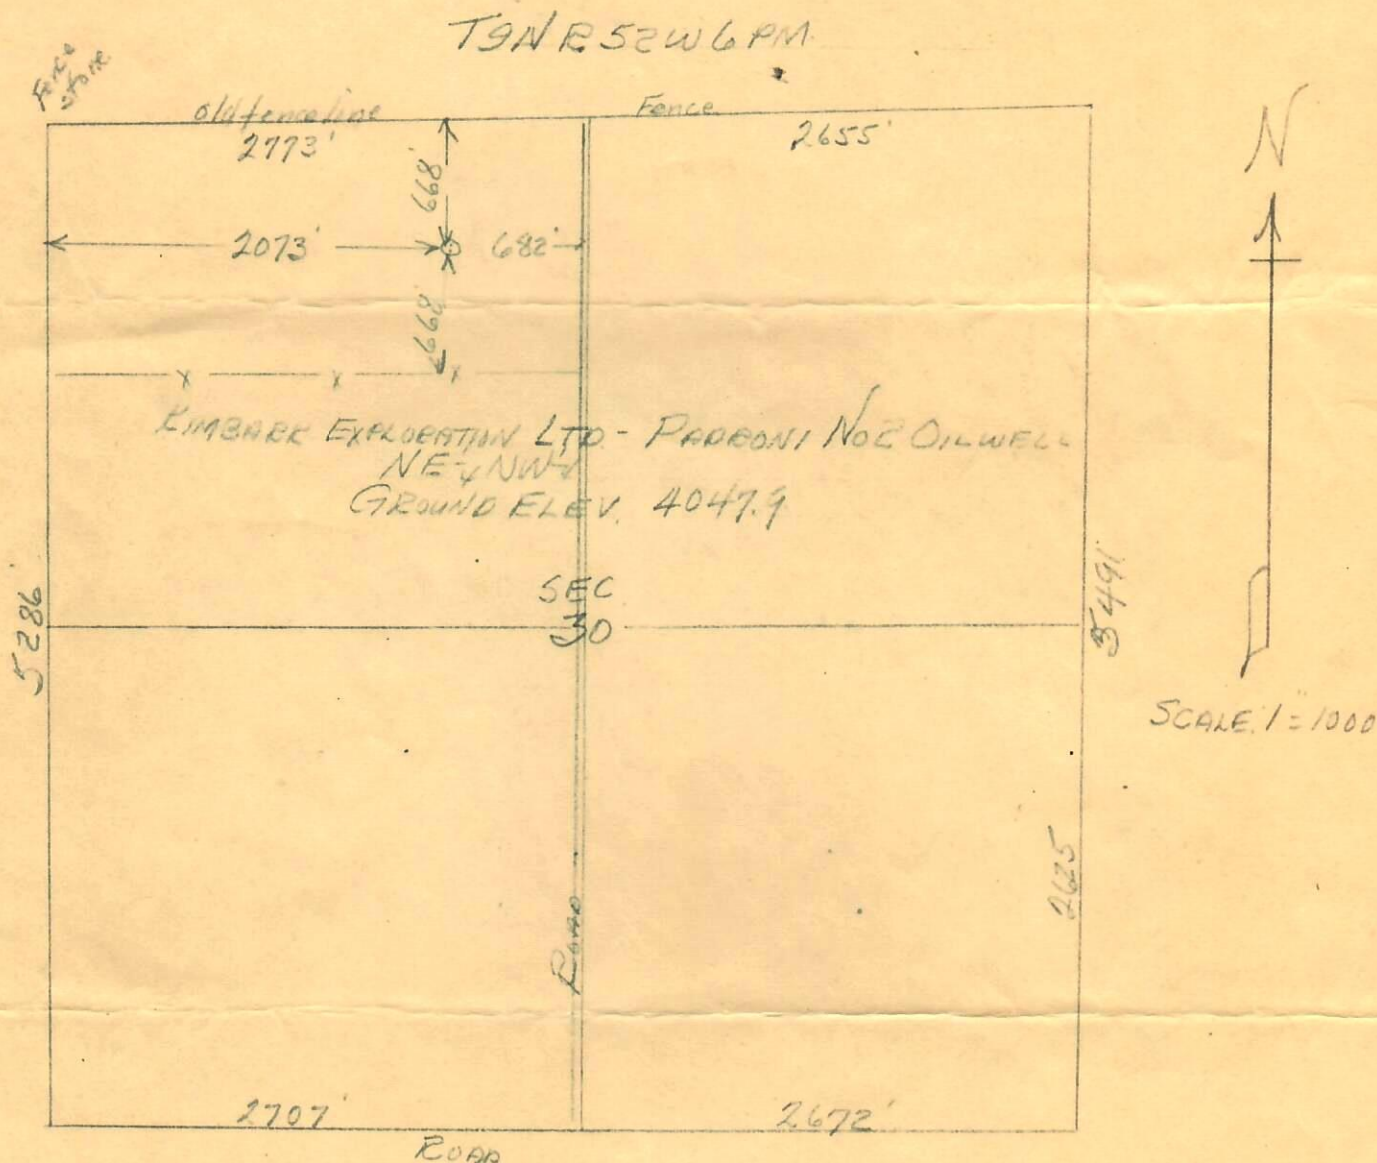 T9N R52W 6PM
Fence
stone
old fence line
Fence
2773'
2655'
N
668'
2073'
682'
668'
KIMBARK EXPLORATION LTD. - PADRONI No2 OILWELL
NE¼NW¼
GROUND ELEV. 4047.9
SEC
30
5286'
5491'
SCALE 1"=1000
2625
ROAD
2707'
2672'
ROAD